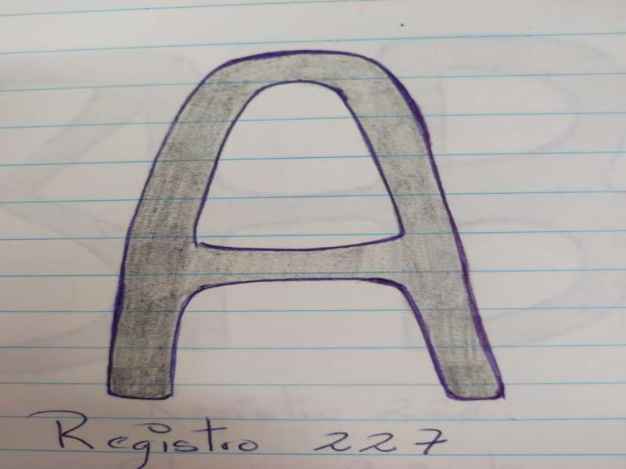 A
Registro 227